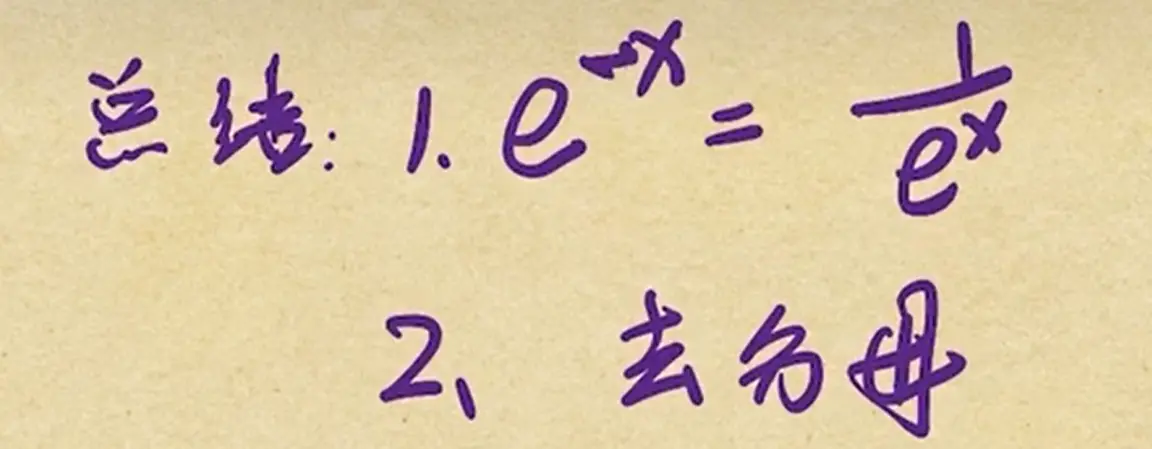 总结: 1. e^{-x} = \frac{1}{e^x}
2、 去分母